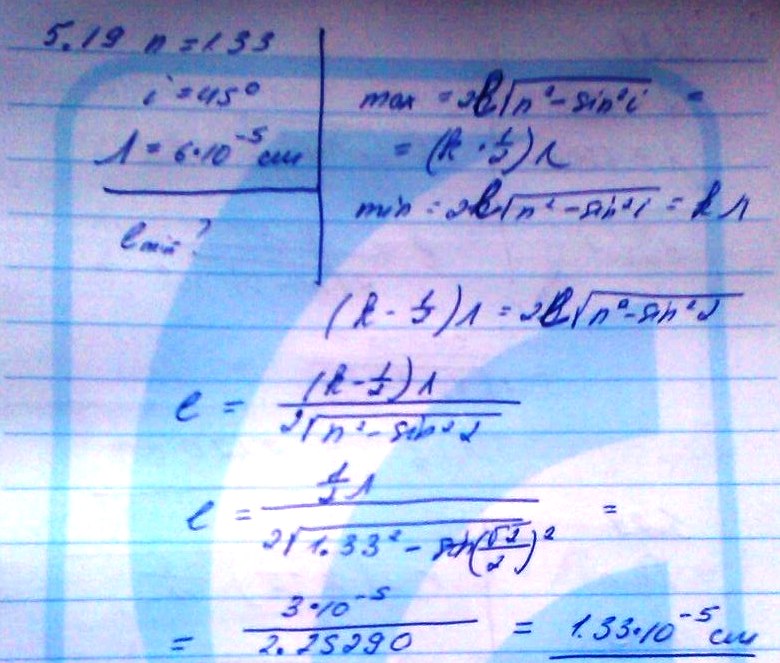 5.19 n = 1.33
i = 45°
λ = 6·10⁻⁵ см
l min?
max = 2l√(n² - sin²i) =
= (k · 1/2) λ
min = 2l√(n² - sin²i) = k λ
(k - 1/2) λ = 2l√(n² - sin²2
l = (k - 1/2) λ / 2√(n² - sin²2)
l = 1/2 λ / 2√(1.33² - (√2/2)²) =
= 3·10⁻⁵ / 2.25290 = 1.33·10⁻⁵ см